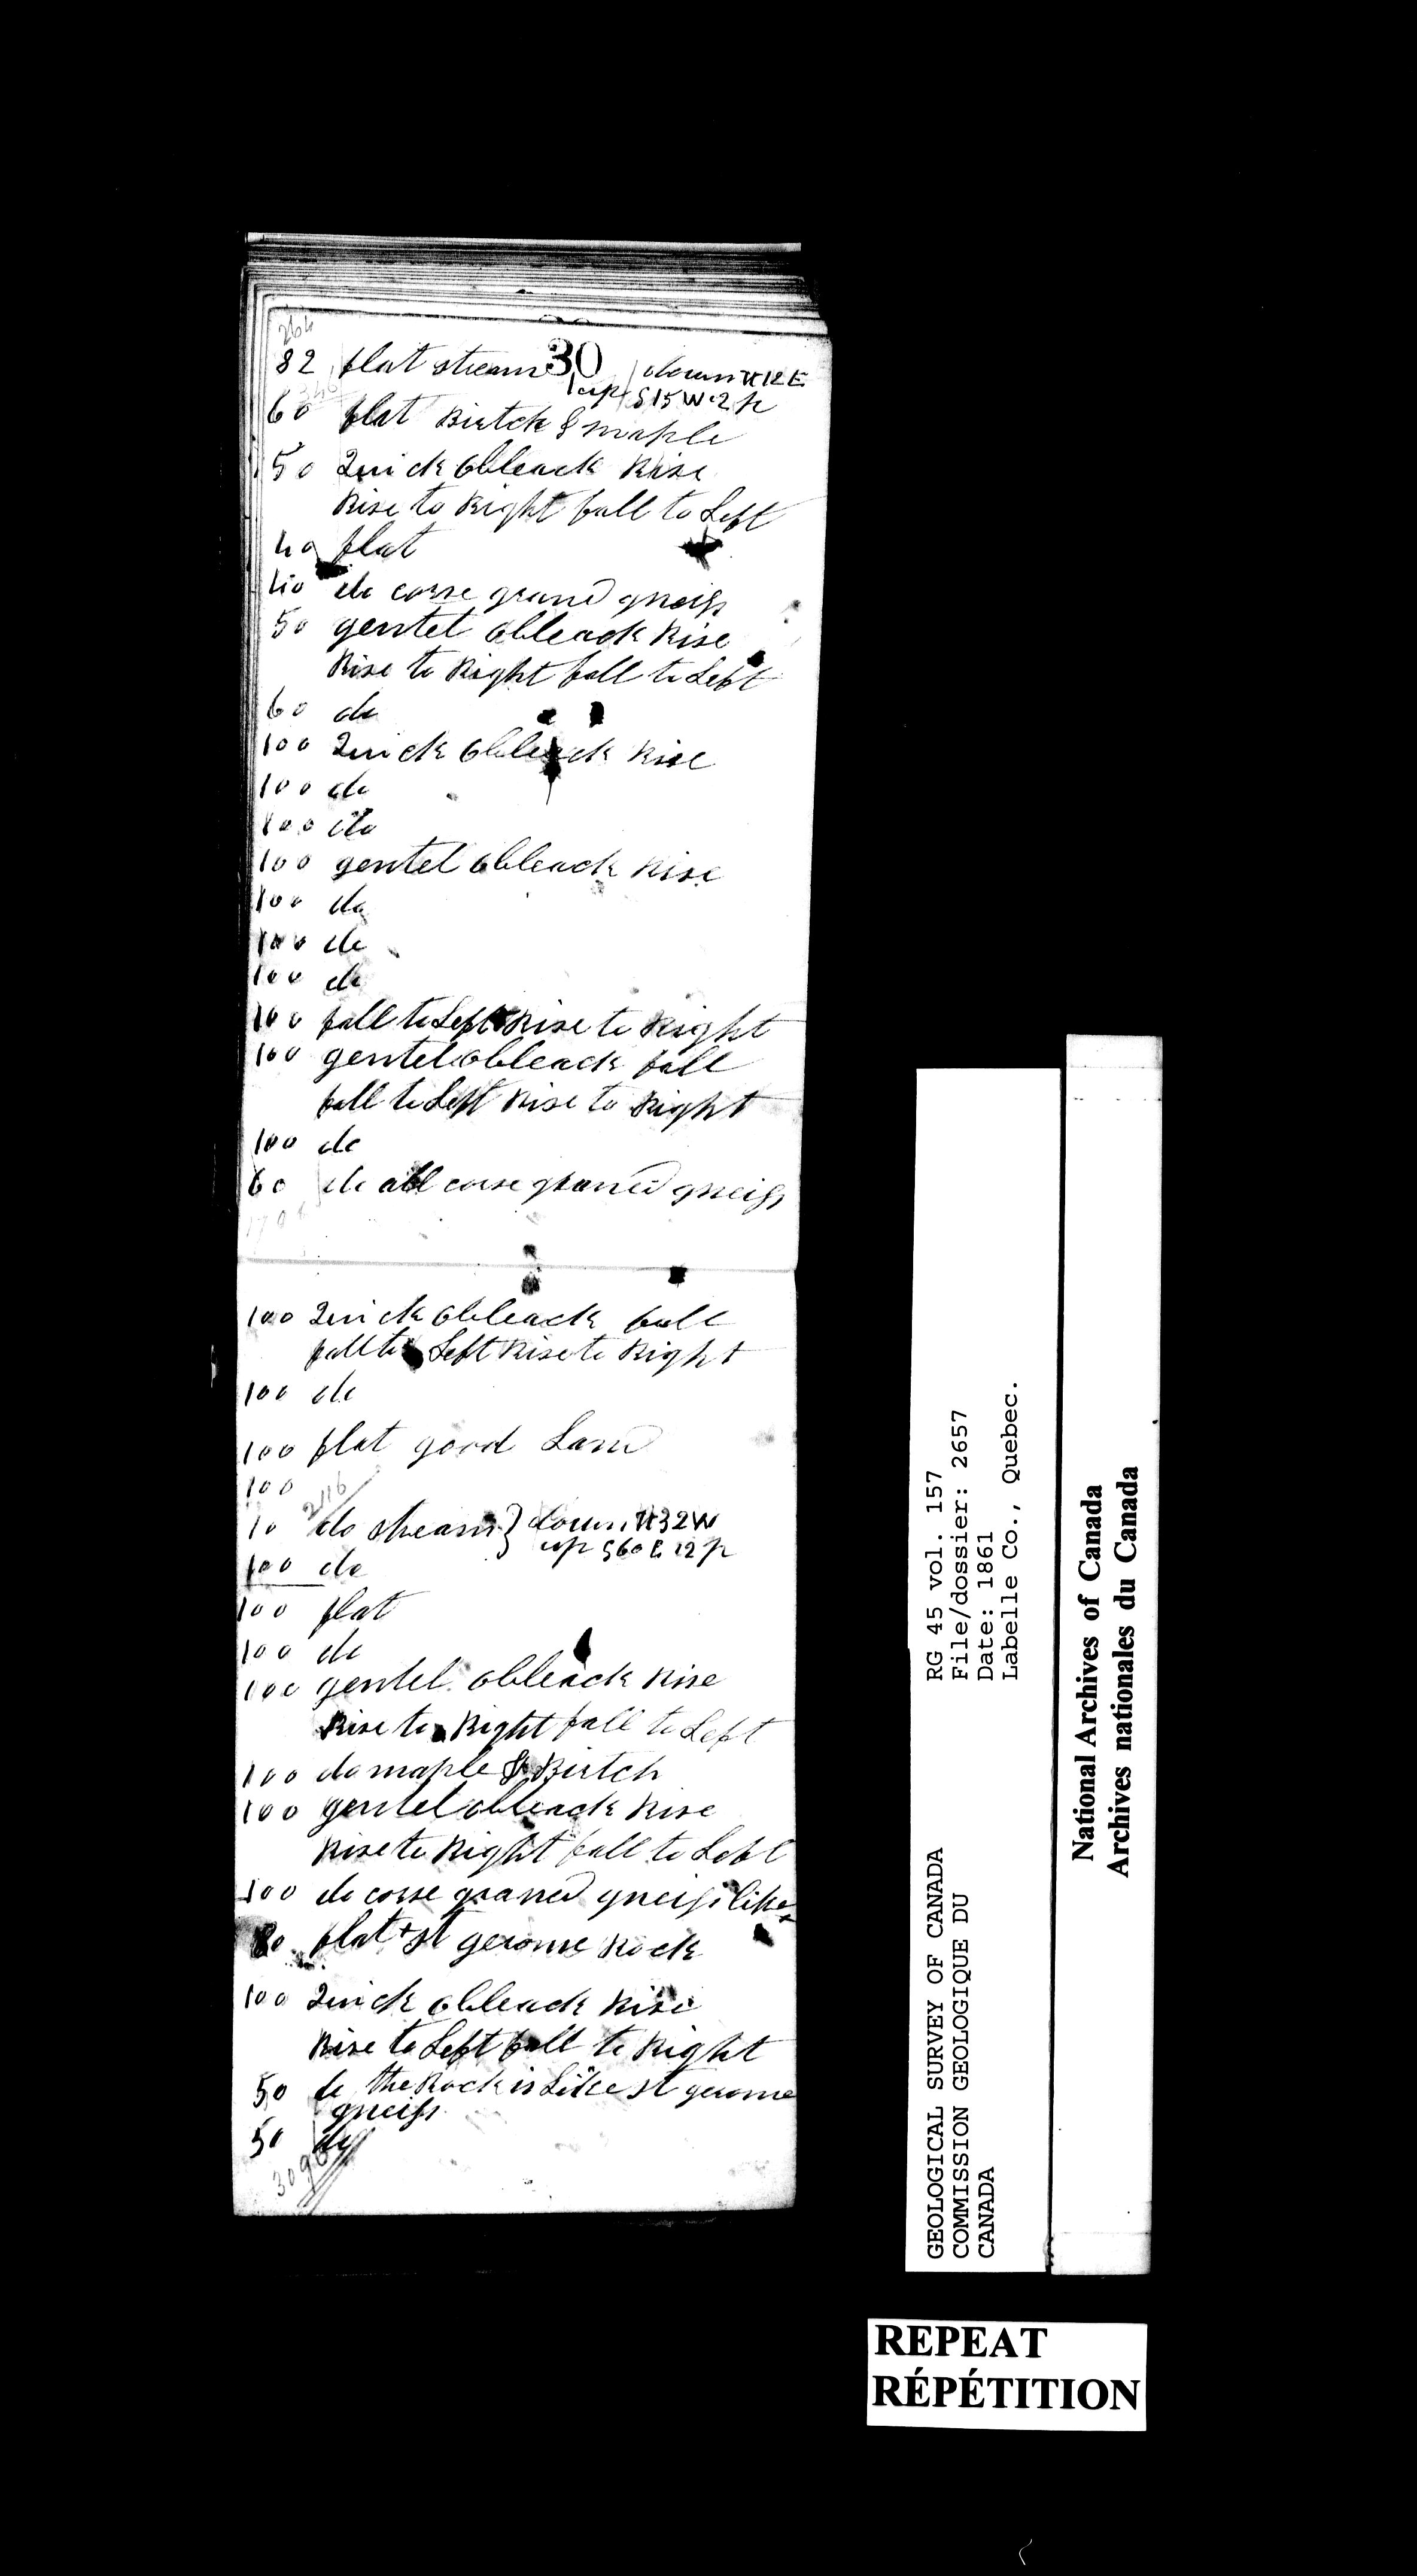 264
30
82 flat stream / down N12E
up / S15W 2 p
60 flat Birtch & maple
50 Quick obleack Rise
Rise to Right fall to Left
40 flat
40 do corse grand gneiss
50 gentel obleack Rise
Rise to Right fall to Left
60 do
100 Quick obleack Rise
100 do
100 do
100 gentel obleack Rise
100 do
100 do
100 do
100 fall to Left Rise to Right
100 gentel obleack fall
fall to Left Rise to Right
100 do
60 do all corse graned gneiss
100 Quick obleack fall
fall to Left Rise to Right
100 do
100 flat good Land
100
2116
10 do stream } down N32W
up S60E 12 p
100 do
100 flat
100 do
100 gentel obleack Rise
Rise to Right fall to Left
100 do maple & Birtch
100 gentel obleack Rise
Rise to Right fall to Left
100 do corse graned gneiss like +
80 flat + St gerome Rock
100 Quick obleack Rise
Rise to Left fall to Right
50 do the Rock is Like St gerome
gneiss
50 do
3096
GEOLOGICAL SURVEY OF CANADA
COMMISSION GEOLOGIQUE DU
CANADA
RG 45 vol. 157
File/dossier: 2657
Date: 1861
Labelle Co., Quebec.
National Archives of Canada
Archives nationales du Canada
REPEAT
RÉPÉTITION